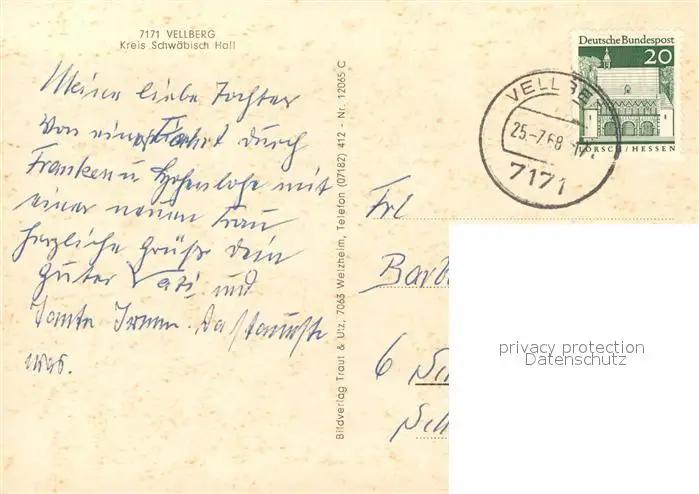 7171 VELLBERG
Kreis Schwäbisch Hall
Meine liebe Tochter
von einer Fahrt durch
Franken u Hohenlohe mit
einer neuen Frau
herzliche Grüße Dein
guter Vati und
Tante Irmen. Da staunste
was.
Bildverlag Traut & Utz, 7063 Welzheim, Telefon (07182) 412 - Nr. 12065 C
Deutsche Bundespost
20
LORSCH/HESSEN
VELLBE
25.-7.68-17
7171
Frl
Barb
6
Sch
privacy protection
Datenschutz